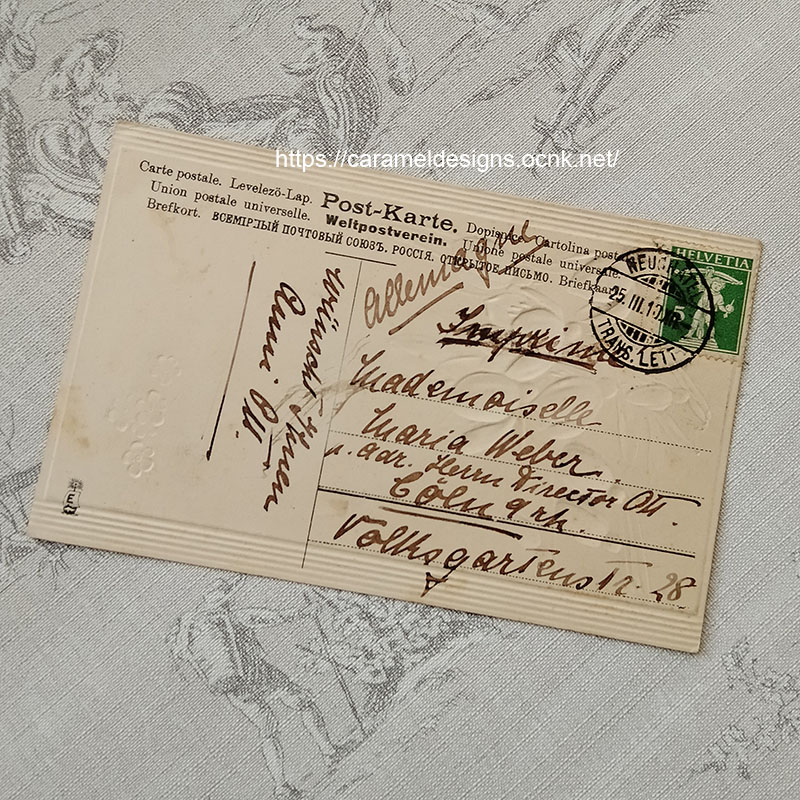 https://carameldesigns.ocnk.net/
Carte postale. Levelező-Lap. Post-Karte. Dopisnice. Cartolina post
Union postale universelle. Weltpostverein. Unione postale universale.
Brefkort. ВСЕМІРНЫЙ ПОЧТОВЫЙ СОЮЗЪ. РОССІЯ. ОТКРЫТОЕ ПИСЬМО. Briefkaart
HELVETIA
5
25. III. 10
TRANS. LETT
Allemagne
Imprimé
Mademoiselle
Maria Weber.
p. adr. Herrn Director Ott.
Cöln a/rh.
Volksgartenstr. 28
wünscht Ihnen
E